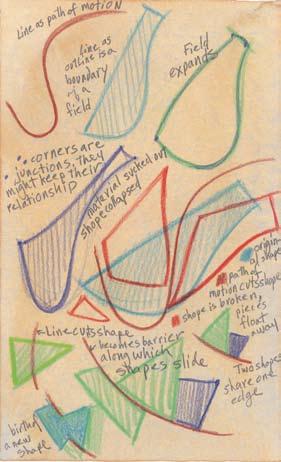 Line as path of motion
line as
outline is a
boundary
of a
field
Field
expands
corners are
junctions, they
might keep their
relationship
material sucked out
shape collapsed
origin
of shape
path of
motion cuts shape
shape is broken,
pieces
float
away
Line cuts shape
becomes barrier
along which
shapes slide
Two shapes
share one
edge
birth of
a new
shape